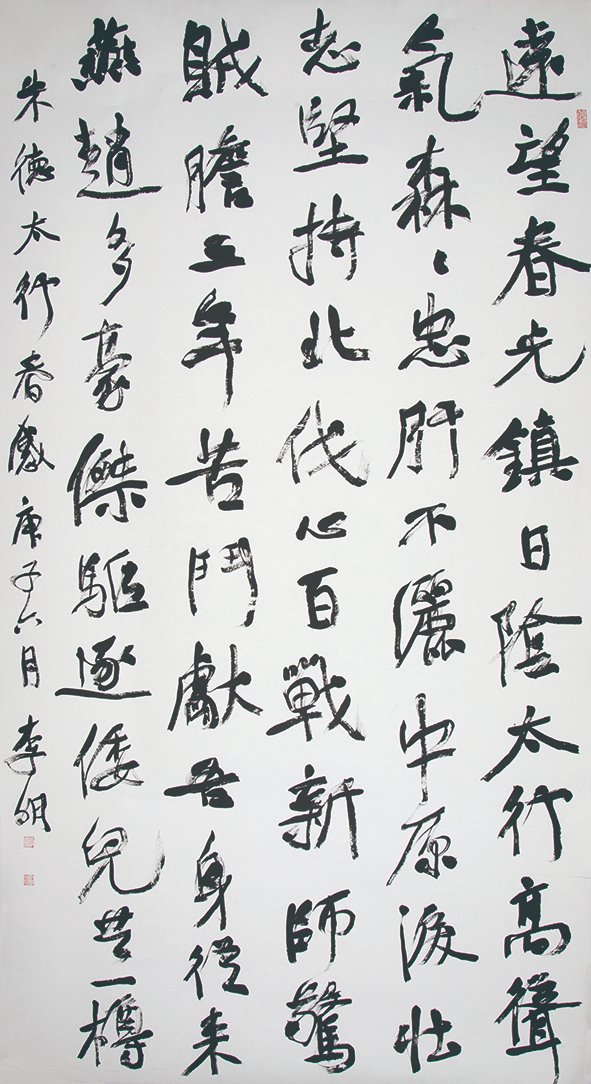 遠望春光鎮日陰太行高聳
氣森〻忠肝不灑中原淚壯
志堅持北伐心百戰新師驚
賊膽三年苦鬥獻吾身從來
燕趙多豪傑驅逐倭兒共一樽
朱德太行春感庚子六月李明